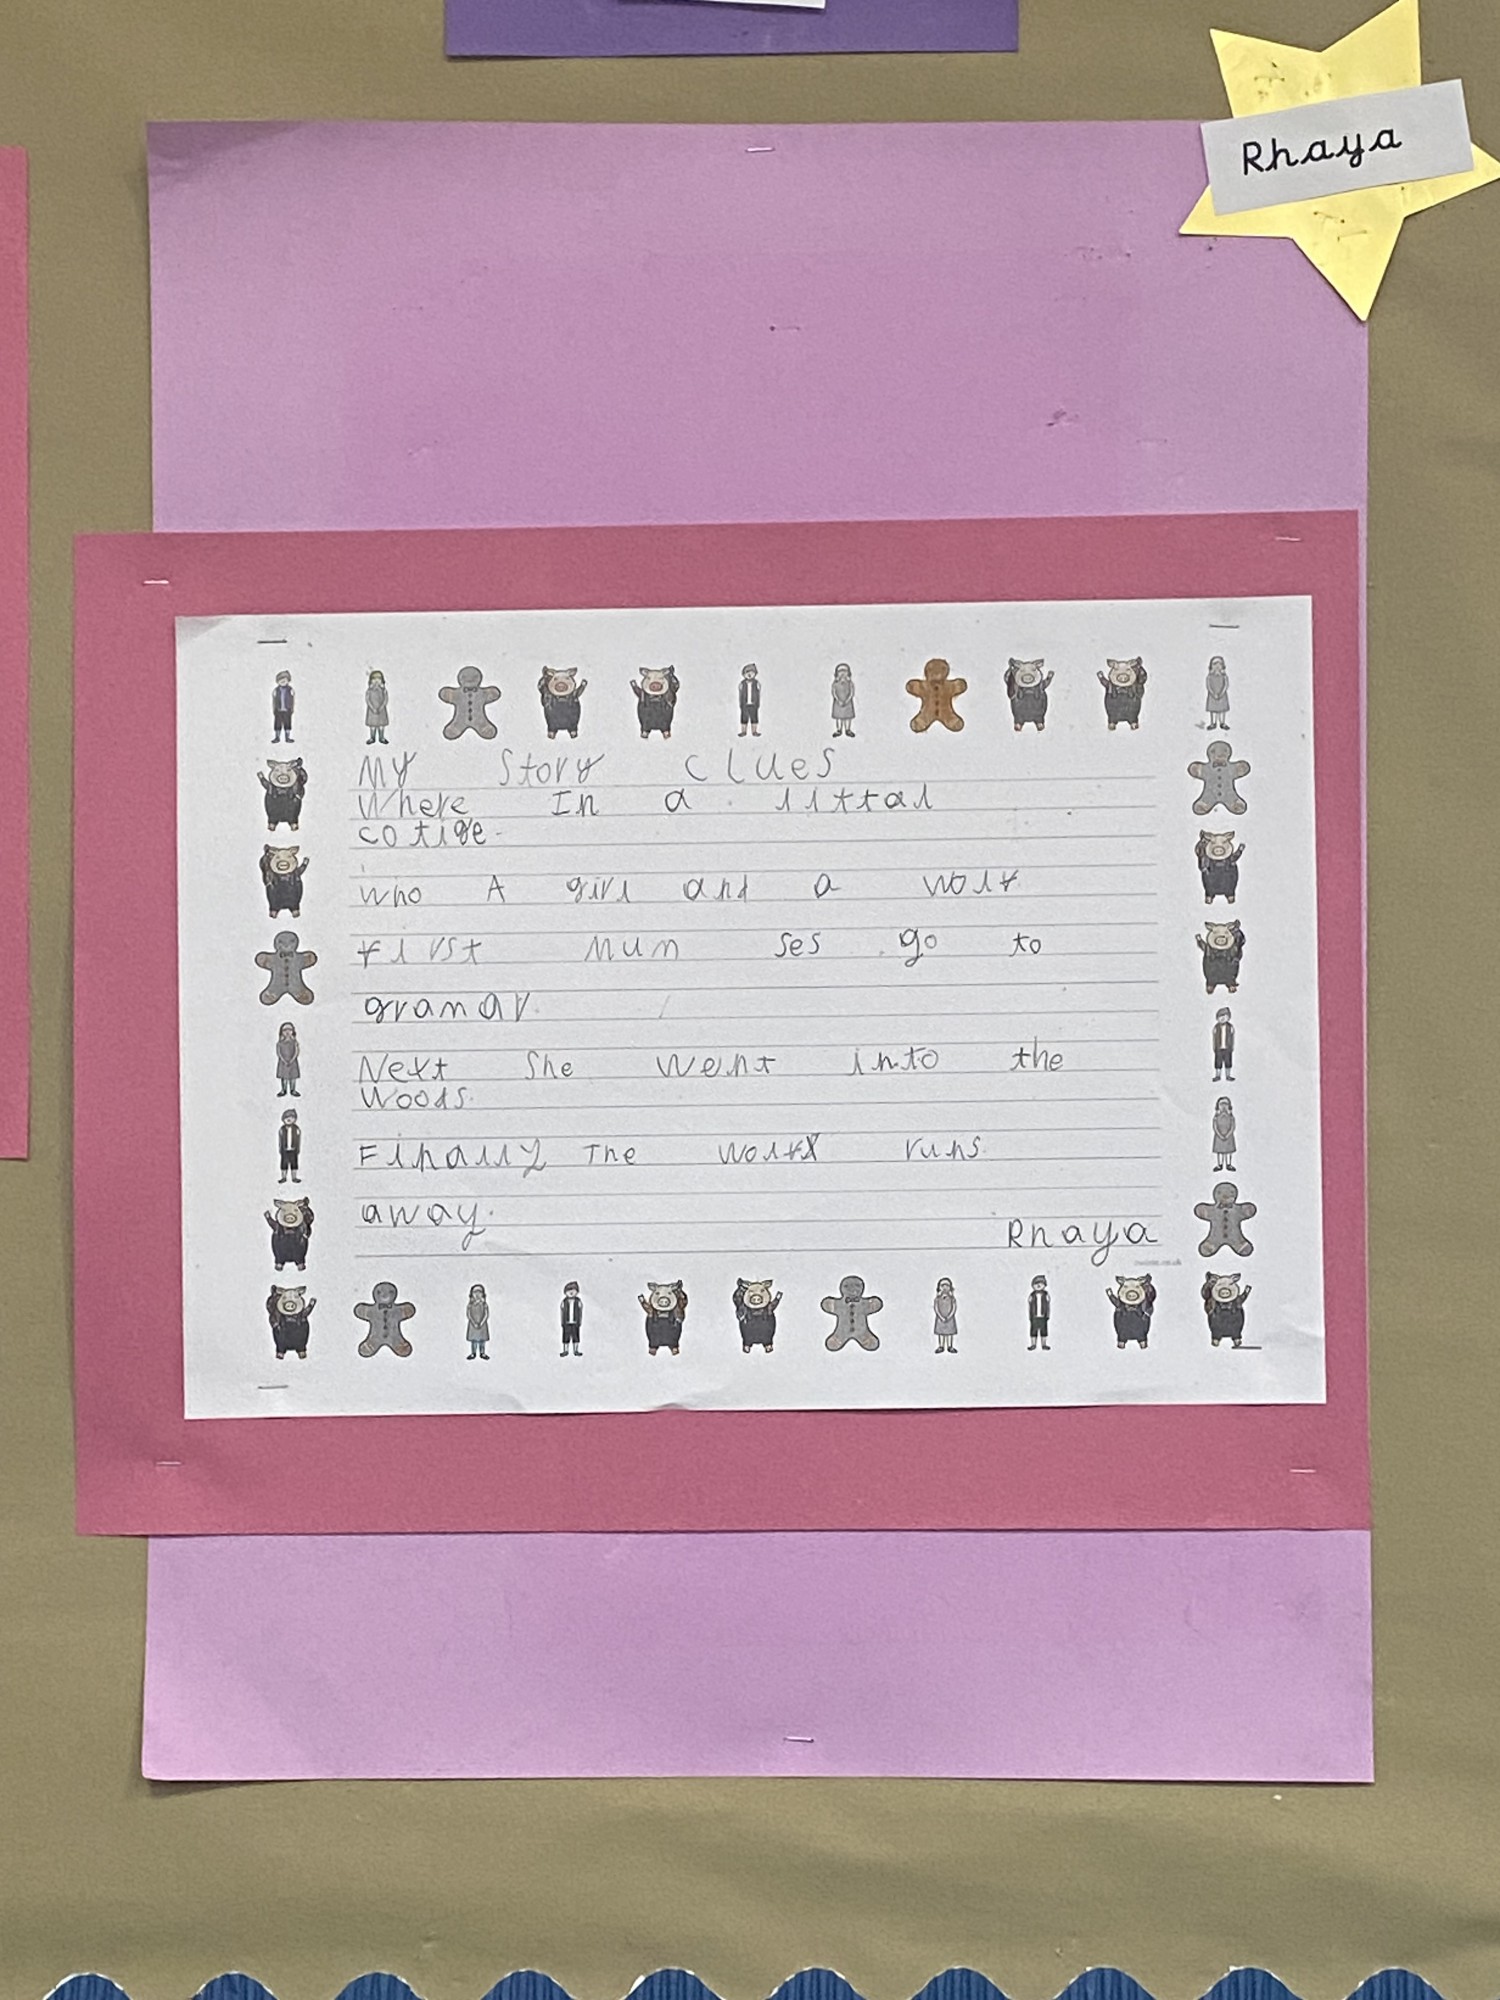 Rhaya
My Story clues
Where In a littal
cotige.
who A girl and a wolf
first Mum ses go to
granar.
Next She went into the
woods.
Finally The wolf runs
away.
Rhaya